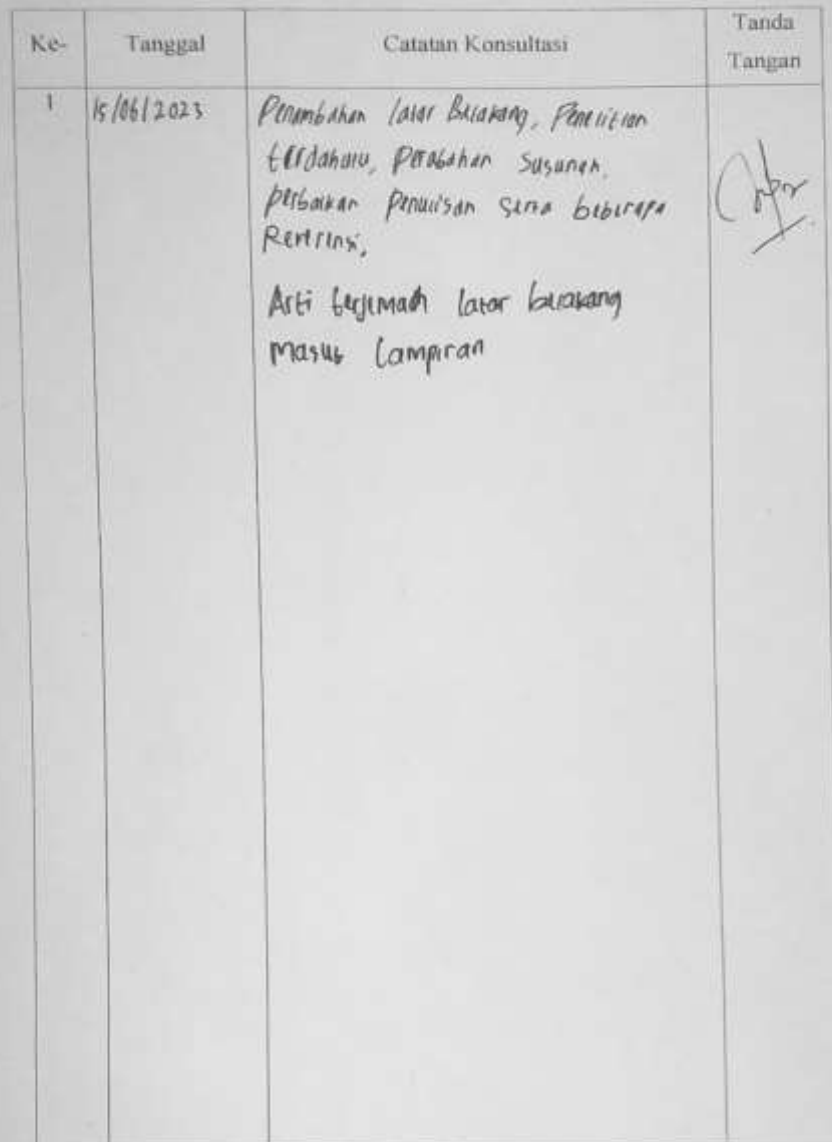 Ke- Tanggal Catatan Konsultasi Tanda Tangan
1 15/06/2023 Penambahan latar Belakang, Penelitian
terdahulu, Perubahan Susunan,
perbaikan Penulisan serta beberapa
Referensi,
Arti terjemah latar belakang
masuk lampiran